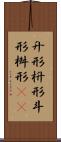 升形枡形斗
形桝形